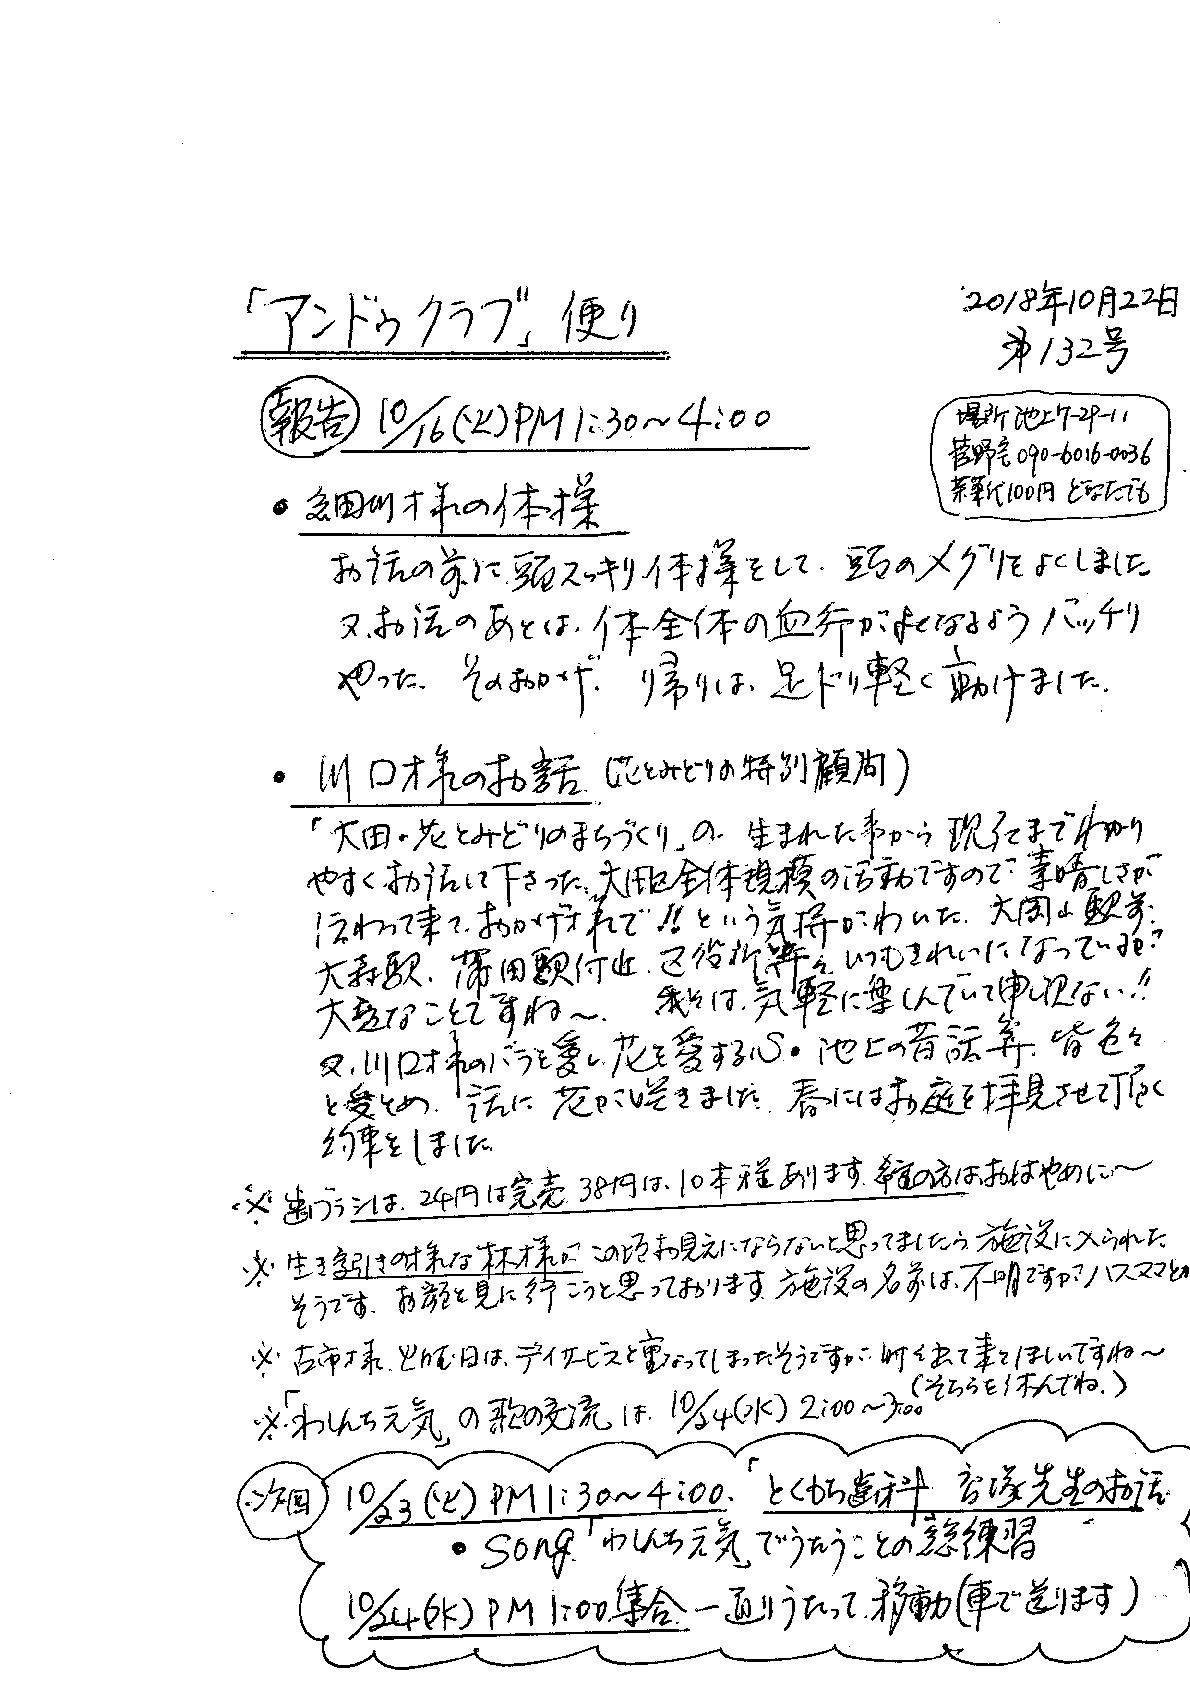 「アンドゥクラブ」便り
2018年10月22日
第132号
場所 池上7-29-11
菅野宅 090-6016-0036
茶菓代100円 どなたでも
報告 10/16(火)PM1:30〜4:00
・細川様の体操
お話の前に頭スッキリ体操をして、頭のメグリをよくしました
又、お話のあとは、体全体の血行がよくなるようバッチリ
やった。そのおかげ、り帰りは、足どり軽く動けました。
・川口様のお話(花とみどりの特別顧問)
「大田・花とみどりのまちづくり」の、生まれた事から現在までわかり
やすくお話して下さった。大田区全体規模の活動ですので、素晴しさが
伝わって来て、おかげ様で!!という気持がわいた。大岡山駅前、
大森駅、蒲田駅付近、区役所等々、いつもきれいになっているが?
大変なことですね〜。私は、気軽に楽しんでいて申し訳ない!!
又、川口様のバラを愛し花を愛する心・池上の昔話等、皆色々
と 話に花が咲きました。春にはお庭を拝見させて頂く
約束をしました
※歯ブラシは、24円は完売 38円は、10本程あります。希望の方はおはやめに〜
※生き字引きの様な林様が この頃お見えにならないと思ってましたら施設に入られた
そうです。お顔を見に行こうと思っております。施設の名前は、不明ですが?ハスヌマとか
※古市様、火曜日は、デイサービスと重なってしまったそうですが、時々出て来てほしいですね〜
(そちらを休んでね。)
※「わしんち元気」の歌の交流は、10/24(水) 2:00〜3:00
次回 10/23(火)PM1:30〜4:00、「とくもち歯科 先生のお話
・song「わしんち元気」でうたうことの総練習
10/24(水)PM1:00集合 一通りうたって、移動(車で送ります)